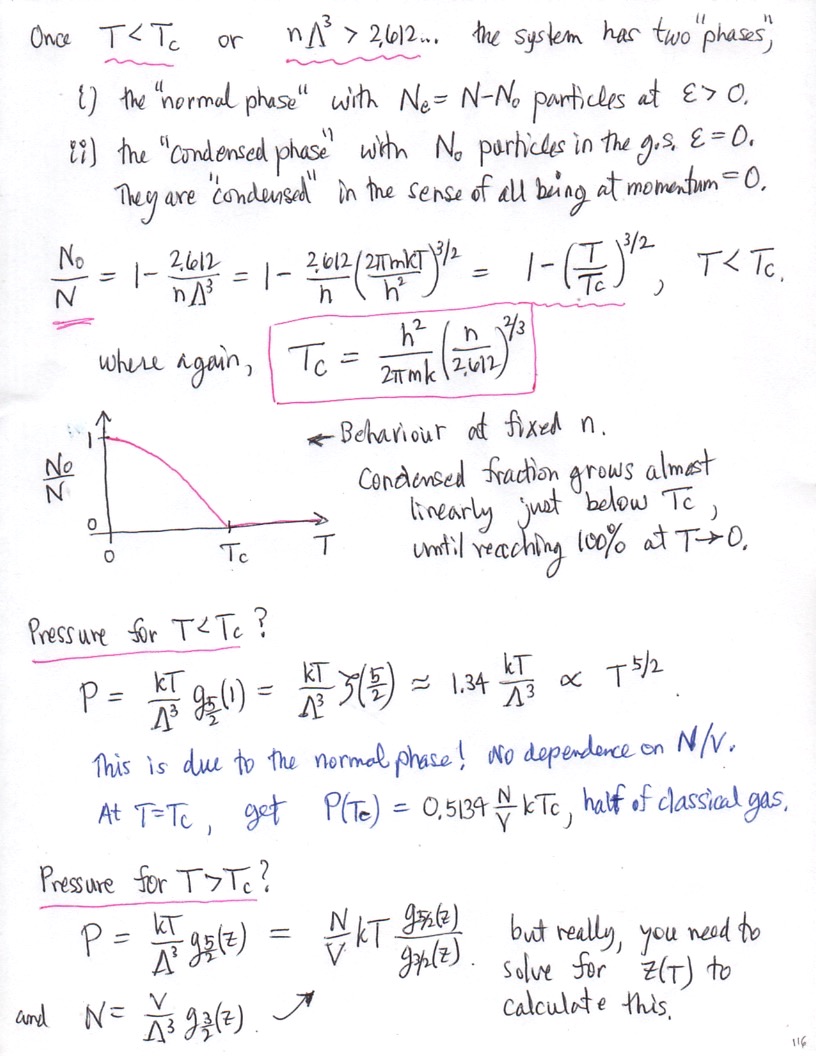 Once T < Tc or nΛ³ > 2.612... the system has two "phases",
i) the "normal phase" with Ne = N-No particles at ε > 0.
ii) the "condensed phase" with No particles in the g.s. ε = 0.
They are "condensed" in the sense of all being at momentum = 0.
No/N = 1 - 2.612/nΛ³ = 1 - 2.612/n (2πmkT/h²)^3/2 = 1 - (T/Tc)^3/2, T < Tc.
where again, Tc = h²/2πmk (n/2.612)^2/3
1
No/N
0
0 Tc T
← Behaviour at fixed n.
Condensed fraction grows almost
linearly just below Tc,
until reaching 100% at T→0.
Pressure for T < Tc?
P = kT/Λ³ g5/2(1) = kT/Λ³ ζ(5/2) ≈ 1.34 kT/Λ³ ∝ T^5/2.
This is due to the normal phase! No dependence on N/V.
At T=Tc, get P(Tc) = 0.5134 N/V kTc, half of classical gas.
Pressure for T > Tc?
P = kT/Λ³ g5/2(z) = N/V kT g5/2(z)/g3/2(z). but really, you need to
solve for z(T) to
calculate this.
and N = V/Λ³ g3/2(z). ↗
116